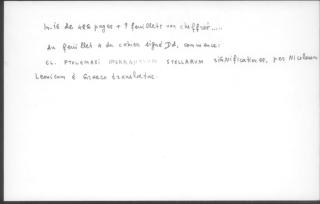 In-16 de 486 pages + 9 feuillets non chiffrés.....
Au feuillet 4 du cahier signé Dd, commence:
CL. PTOLEMAEI INERRANTIUM STELLARUM SIGNIFICATIONES, per NICOLAUM
Leonicum è Graeco translatae